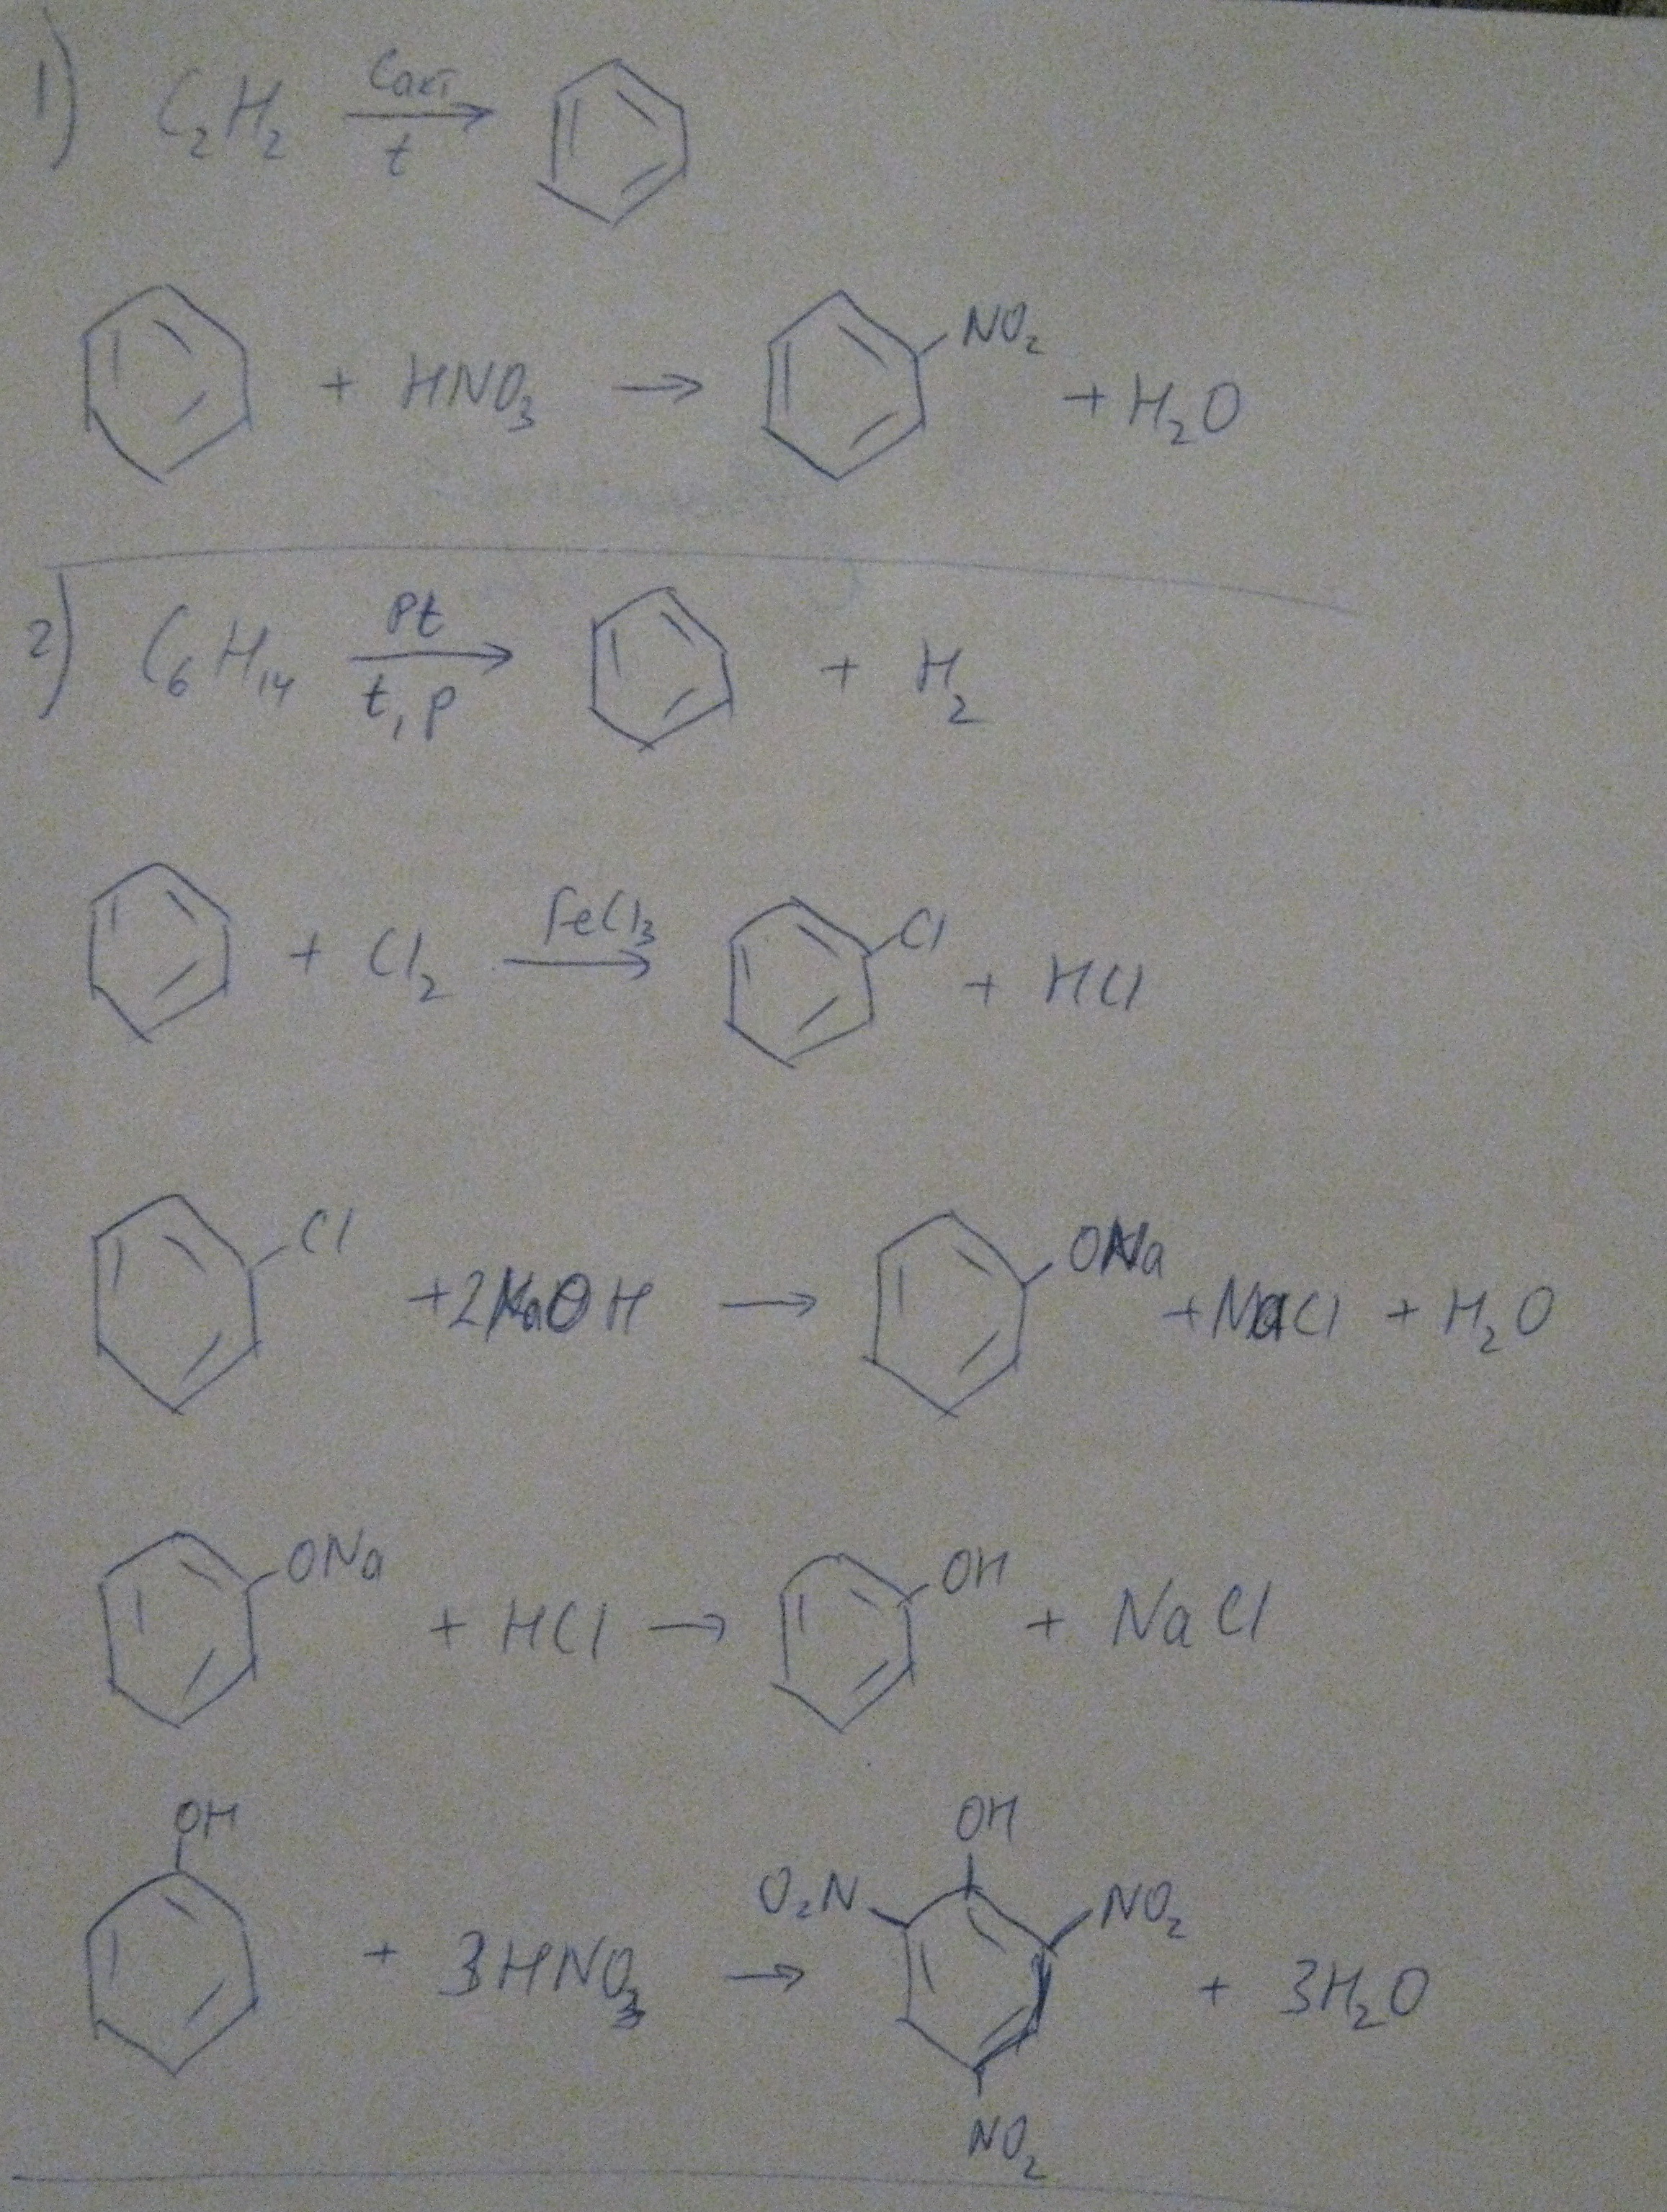 1) C₂H₂ Cакт t →
+ HNO₃ → NO₂ + H₂O
2) C₆H₁₄ Pt t, p → + H₂
+ Cl₂ FeCl₃ → Cl + HCl
Cl + 2NaOH → ONa + NaCl + H₂O
ONa + HCl → OH + NaCl
OH + 3HNO₃ → OH O₂N NO₂ NO₂ + 3H₂O